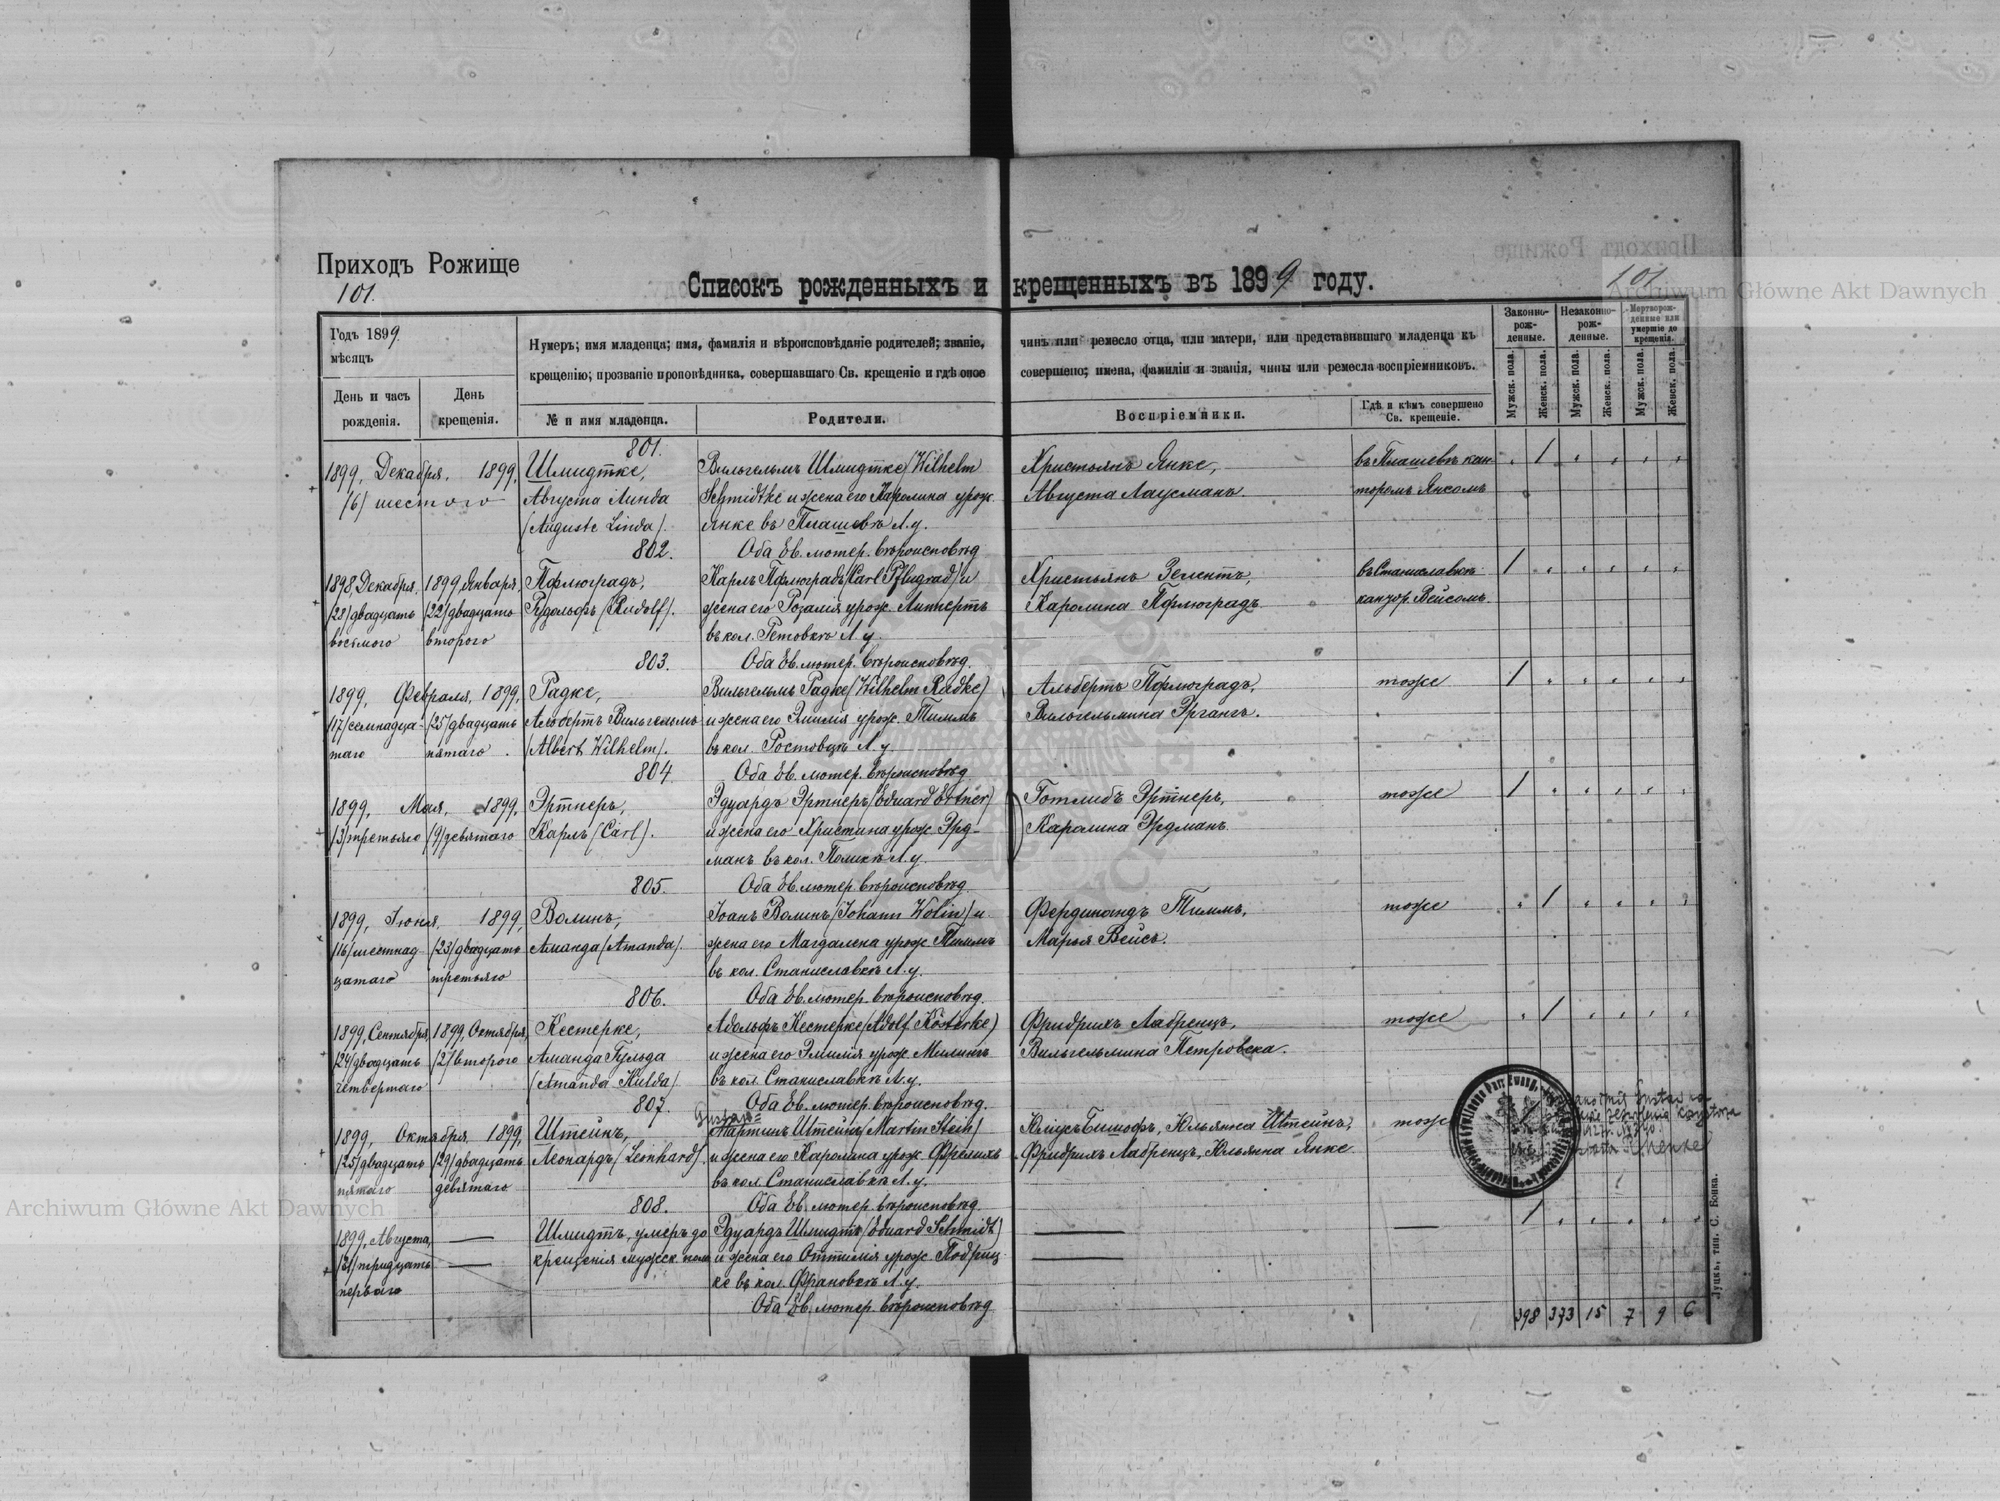 Приходъ Рожище
101.
Списокъ рожденныхъ и крещенныхъ въ 1899 году.
101
Archiwum Główne Akt Dawnych
Годъ 1899.
мѣсяцъ
День и часъ
рожденія.
День
крещенія.
Нумеръ; имя младенца; имя, фамилія и вѣроисповѣданіе родителей; званіе,
крещенію; прозваніе проповѣдника, совершавшаго Св. крещеніе и гдѣ оное
№ и имя младенца.
Родители.
чинъ или ремесло отца, или матери, или представившаго младенца къ
совершено; имена, фамиліи и званія, чины или ремесла воспріемниковъ.
Воспріемники.
Гдѣ и кѣмъ совершено
Св. крещеніе.
Законно-
рож-
денные.
Незаконно-
рож-
денные.
Мертворож-
денные или
умершіе до
крещенія.
Мужск. пола.
Женск. пола.
Мужск. пола.
Женск. пола.
Мужск. пола.
Женск. пола.
801.
1899, Декабря, 1899,
/6/ шестого
Шмидтке,
Августа Линда
/Auguste Linda/.
Вильгельмъ Шмидтке /Wilhelm
Schmidtke и жена его Каролина урож.
Янке въ Плашевѣ Л. у.
Оба Ев. лютер. вѣроисповѣд
Христьянъ Янке,
Августа Лаусманъ.
въ Плашевѣ кан-
торомъ Янсомъ
802.
1898, Декабря, 1899, Января,
/28/ двадцать /22/ двадцать
восьмого второго
Пфлюградъ,
Рудольфъ /Rudolf/.
Карлъ Пфлюградъ /Carl Pflugrad/ и
жена его Розалія урож. Липпертъ
въ кол. Ретовкѣ Л. у.
Оба Ев. лютер. вѣроисповѣд.
Христьянъ Зелентъ,
Каролина Пфлюградъ.
въ Станиславкѣ
кантор. Вейсомъ.
803.
1899, Февраля, 1899,
/17/ семнадца- /25/ двадцать
таго пятаго.
Радке,
Альбертъ Вильгельмъ
/Albert Wilhelm/.
Вильгельмъ Радке /Wilhelm Radke/
и жена его Эмилія урож. Тиммъ
въ кол. Ростовцѣ Л. у
Оба Ев. лютер. вѣроисповѣд
Альбертъ Пфлюградъ,
Вильгельмина Эргангъ.
тоже
804.
1899, Мая, 1899.
/3/ третьяго /9/ девятаго
Эртнеръ,
Карлъ /Carl/.
Эдуардъ Эртнеръ /Eduard Ertner/
и жена его Христина урож. Эрд-
манъ въ кол. Полинѣ Л. у.
Оба Ев. лютер. вѣроисповѣд.
Готлибъ Эртнеръ,
Каролина Эрдманъ.
тоже
805.
1899, Іюня, 1899,
/16/ шестнад- /23/ двадцать
цатаго третьяго
Волинъ,
Аманда /Amanda/.
Іоанъ Волинъ /Johann Wolin/ и
жена его Магдалена урож. Тиммъ
въ кол. Станиславкѣ Л. у.
Оба Ев. лютер. вѣроисповѣд.
Фердинандъ Тиммъ,
Марья Вейсъ.
тоже
806.
1899, Сентября, 1899, Октября,
/24/ двадцать /2/ второго
четвертаго
Кестерке,
Аманда Гульда
/Amanda Hulda/.
Адольфъ Кестерке /Adolf Kösterke/
и жена его Эмилія урож. Милингъ
въ кол. Станиславкѣ Л. у.
Оба Ев. лютер. вѣроисповѣд.
Фридрихъ Лабренцъ,
Вильгельмина Петровска.
тоже
807.
1899, Октября, 1899,
/25/ двадцать /29/ двадцать
пятаго девятаго
Штейнъ,
Леонардъ /Leonhard/.
Gustav=
Мартинъ Штейнъ /Martin Stein/
и жена его Каролина урож. Фрелихъ
въ кол. Станиславкѣ Л. у.
Оба Ев. лютер. вѣроисповѣд
Юліусъ Бишофъ, Юльянна Штейнъ,
Фридрихъ Лабренцъ, Юльянна Янке
тоже
808.
1899, Августа,
/31/ тридцать
перваго
Шмидтъ, умеръ до
крещенія мужск. пола
Эдуардъ Шмидтъ /Eduard Schmidt/
и жена его Оттилія урож. Подриц-
ке въ кол. Франовкѣ Л. у.
Оба Ев. лютер. вѣроисповѣд
398 373 15 7 9 6
Луцкъ, тип. С. Бонка.
Archiwum Główne Akt Dawnych